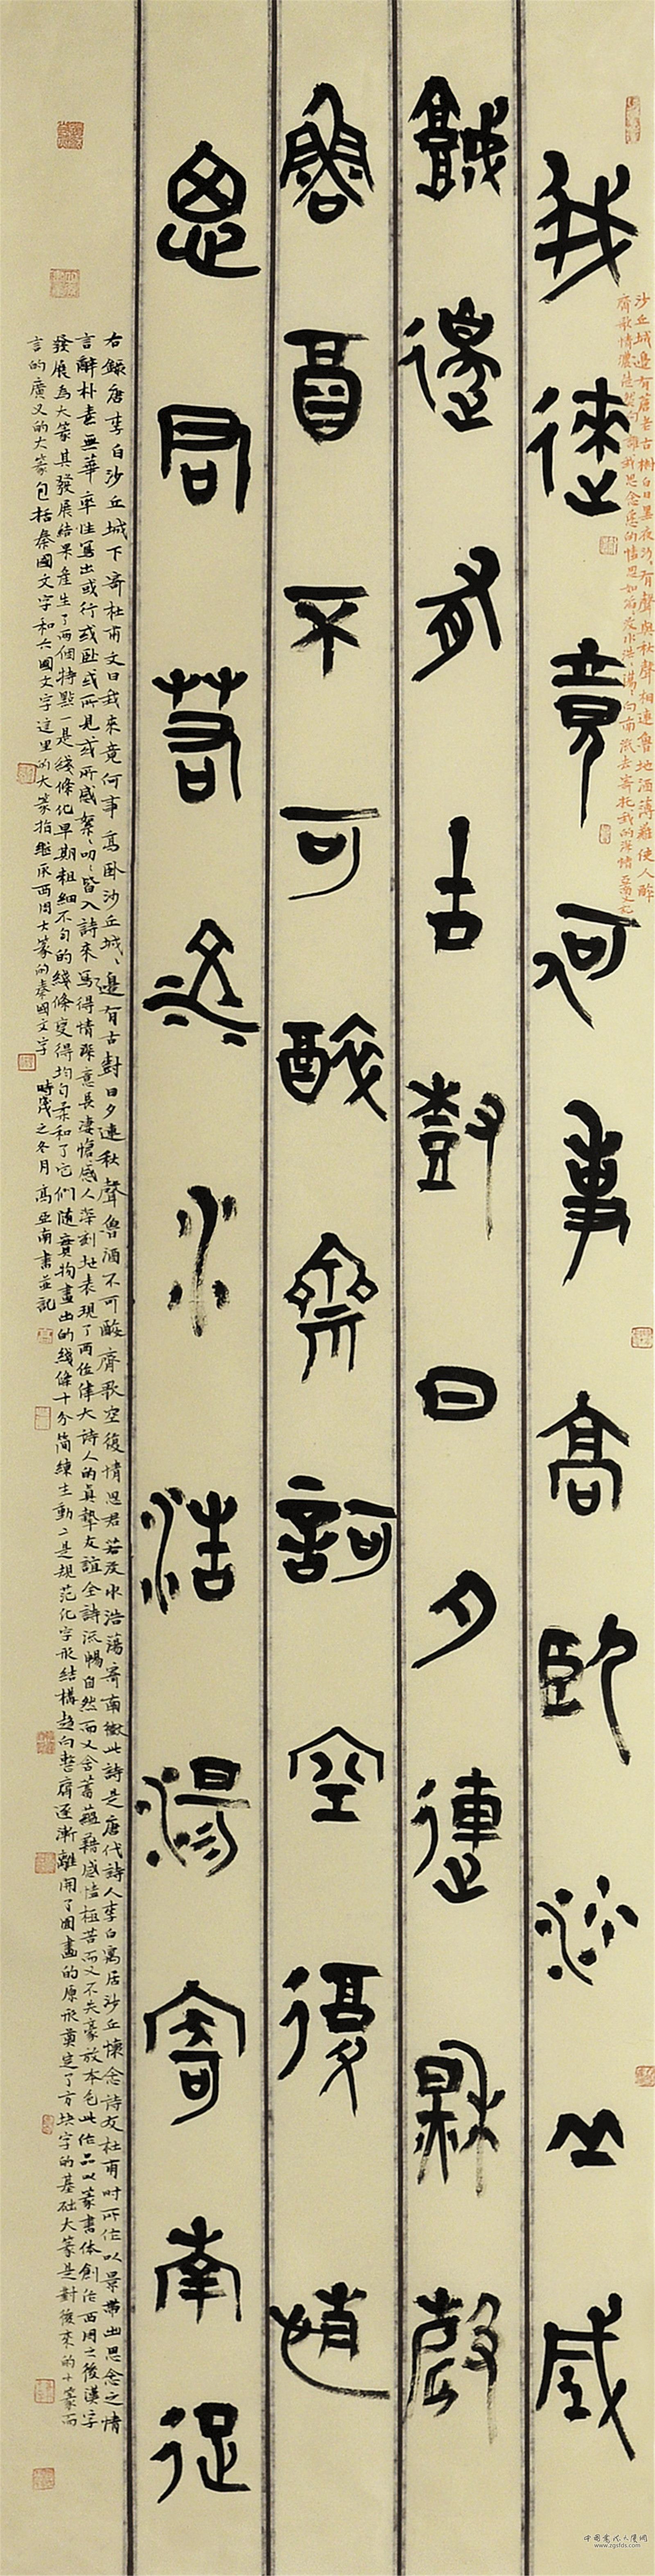 我來竟何事高臥沙丘城
城邊有古樹日夕連秋聲
魯酒不可醉齊歌空復情
思君若汶水浩蕩寄南征
右錄唐李白沙丘城下寄杜甫文曰我來竟何事高臥沙丘城城邊有古樹日夕連秋聲魯酒不可醉齊歌空復情思君若汶水浩蕩寄南徵此詩是唐代詩人李白寓居沙丘懷念詩友杜甫時所作以景帶出思念之情
言辭朴素無華率性寫出或行或臥或所見或所感絮絮叨叨皆入詩來寫得情深意長淒愴感人深刻地表現了兩位偉大詩人的真摯友誼全詩流暢自然而又含蓄蘊藉感情極苦而又不失豪放本色此作品以篆書体創作西周之後漢字
發展為大篆其發展結果產生了兩個特點一是綫條化早期粗細不勻的綫條變得均勻柔和了它們隨實物畫出的綫條十分簡練生動二是規范化字形結構趨向整齊逐漸離開了圖畫的原形奠定了方块字的基础大篆是對後來的小篆而
言的廣义的大篆包括秦國文字和六國文字這里的大篆指繼承西周大篆的秦國文字 時 之冬月高亞南書並記
沙丘城邊有蒼老古樹白日暮夜沙沙有聲與秋聲相連魯地酒薄難使人醉
齊歌情濃 我思念您的情思如 汶水浩浩蕩蕩向南流去寄托我的深情
中國書法人才網
www.zgsfds.com